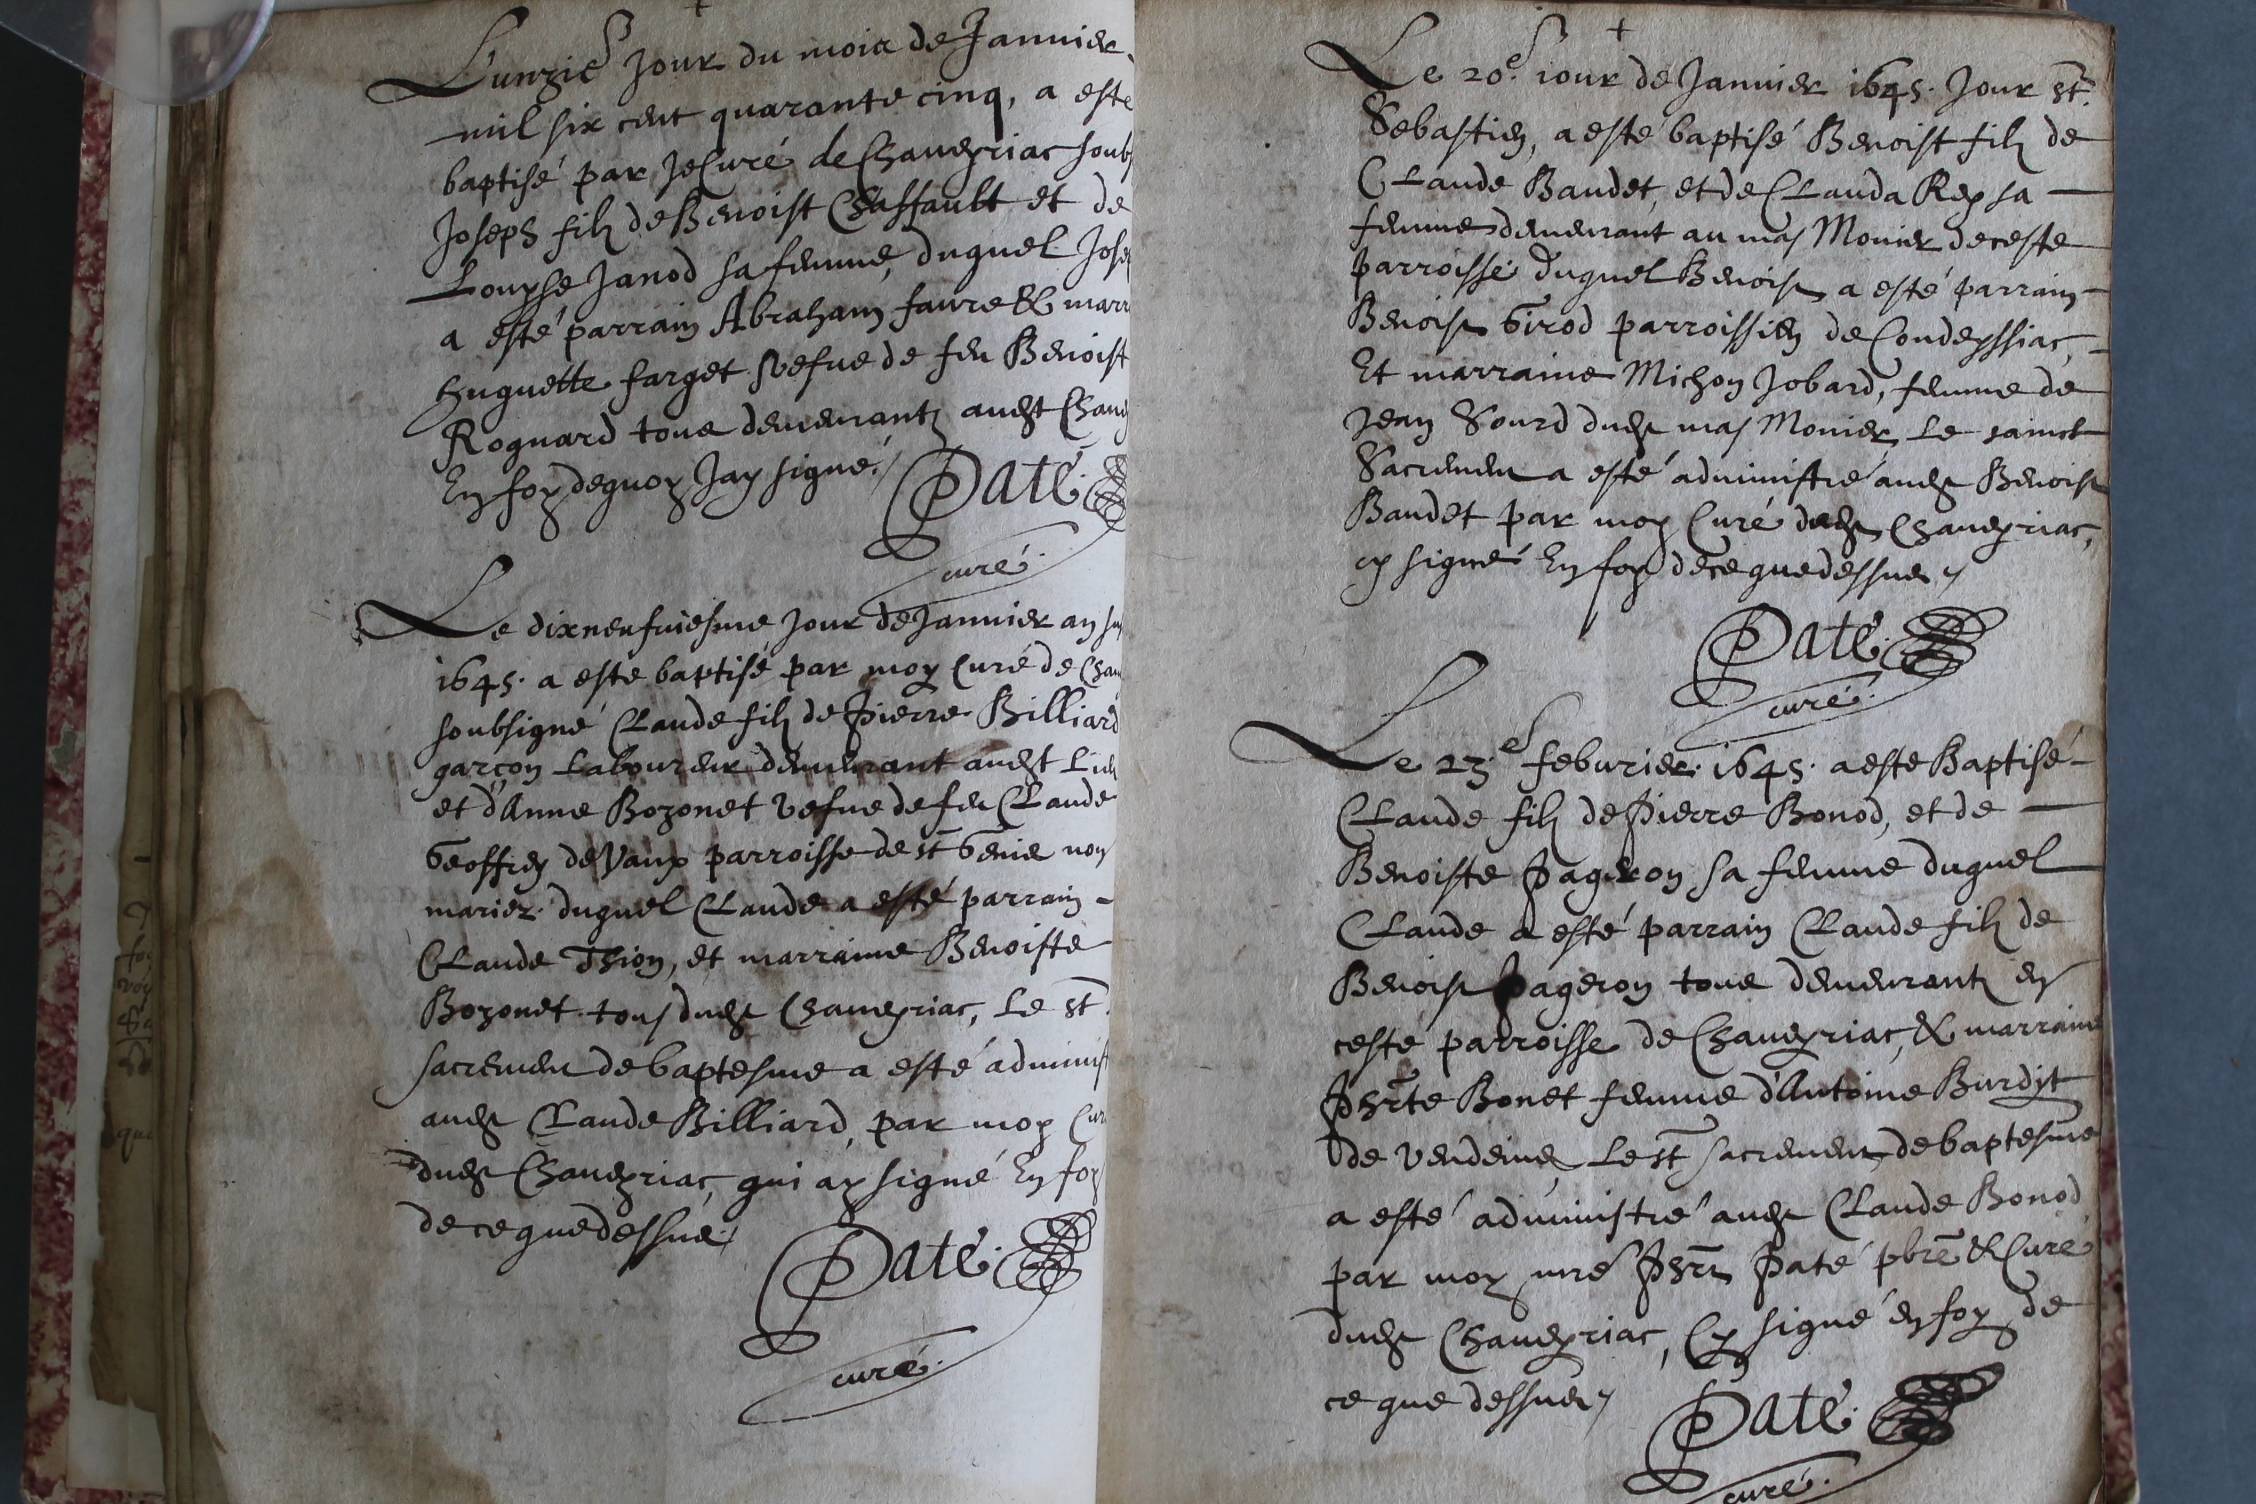 L'unzie jour du mois de Janvier
mil six cent quarante cinq, a este
baptisé par je Curé de Chaveyriac soub
Joseph filz de Benoist Chaffault et de
Louyse Janod sa femme, duquel Jose
a esté parrain Abraham faure & marr
huguette farget vefve de feu Benoist
Roguard tous demeurantz audt Chav
En foy dequoy Jay signé./
Paté.
curé.
Le dixneufviesme jour de Janvier an su
1645. a este baptisé par moy Curé de Cha
soubsigné Claude filz de Pierre Billiard
garçon Laboureur demeurant audt Lieu
et d'Anne Bozonet vefve de feu Claude
Geoffrey de Vaux parroisse de st Genis non
mariez. duquel Claude a esté parrain -
Claude Thion, et marraine Benoiste
Bozonet tous dudt Chaveyriac, Le st.
sacrement de baptesme a esté administ
audt Claude Billiard, par moy Cur
dudt Chaveyriac, qui ay signé En foy
de ce que dessus./
Paté.
curé.
+
Le 20e. jour de Janvier 1645. Jour st.
Sebastien, a esté baptisé Benoist filz de
Claude Baudet, et de Clauda Rey sa —
femme demeurant au mas Monier de ceste
parroisse duquel Benoist a esté parrain -
Benoist Girod parroissien de Condeyssiac, -
Et marraine Michon Jobard, femme de
Jean Sourd dudt mas Monier, Le sainct
Sacrement a esté administré audt Benoist
Baudet par moy Curé dudt Chaveyriac,
cy signé En foy de ce que dessus./
Paté.
curé.
Le 23.e febvrier. 1645. a este Baptisé -
Claude filz de Pierre Bonod, et de —
Benoiste Pageron sa femme duquel
Claude a esté parrain Claude filz de
Benoist Pageron tous demeurantz en
ceste parroisse de Chaveyriac, & marraine
Phrte Bonet femme d'Antoine Burdyt
de Vendeins, Le st sacrement de baptesme
a esté administré audt Claude Bonod
par moy mre Phrt Paté pbre & Curé
dudt Chaveyriac, Cy signé en foy de
ce que dessus./
Paté.
curé.